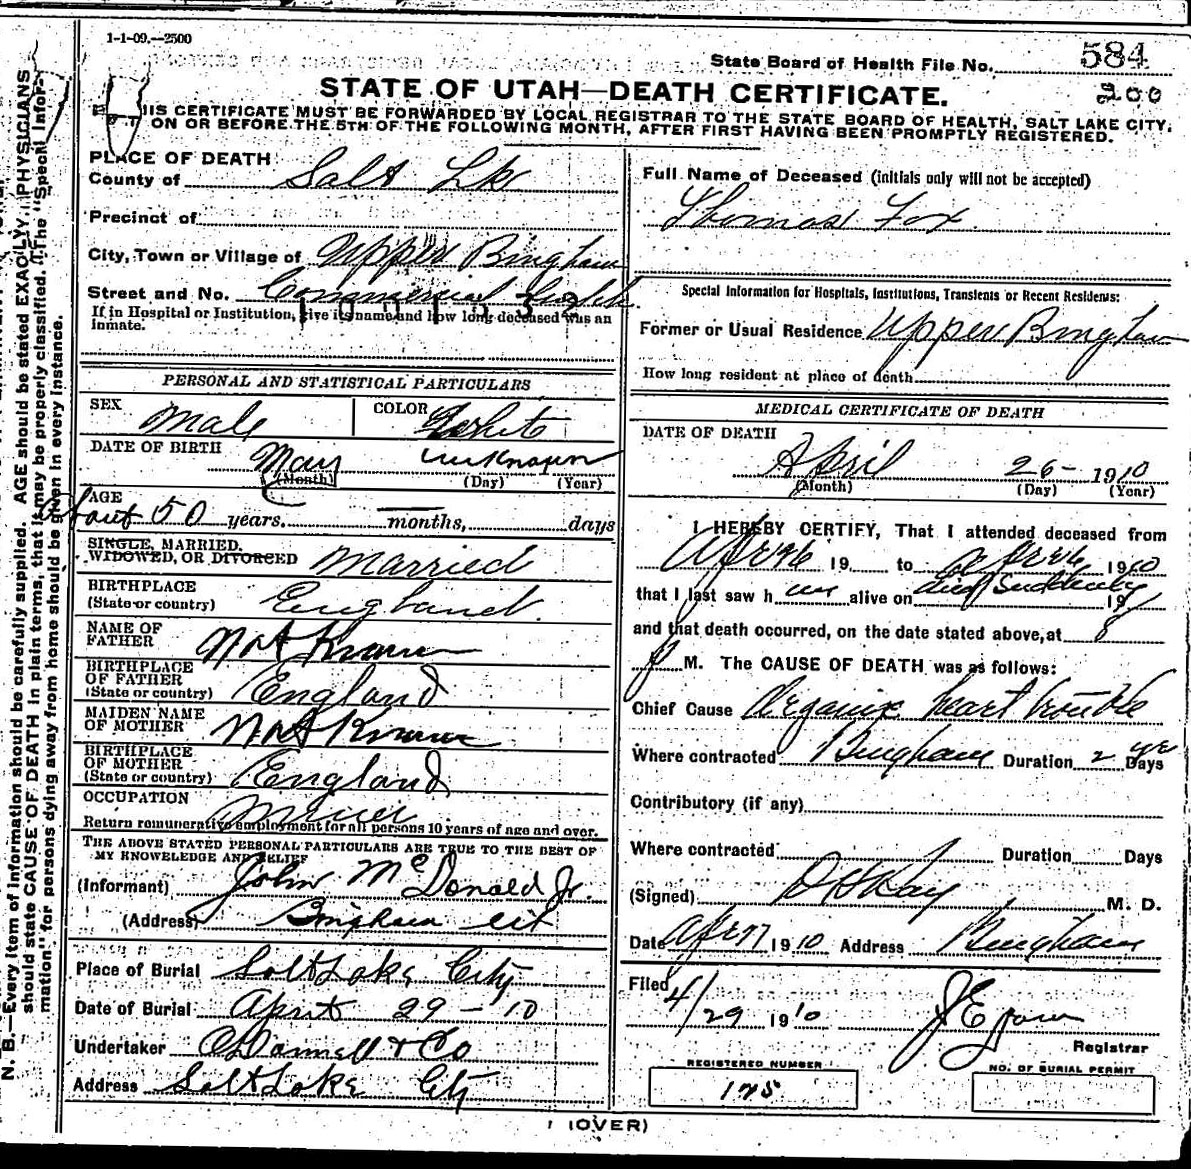 1-1-09.—2500
State Board of Health File No. 584
STATE OF UTAH—DEATH CERTIFICATE. 200
THIS CERTIFICATE MUST BE FORWARDED BY LOCAL REGISTRAR TO THE STATE BOARD OF HEALTH, SALT LAKE CITY,
ON OR BEFORE THE 5TH OF THE FOLLOWING MONTH, AFTER FIRST HAVING BEEN PROMPTLY REGISTERED.
PLACE OF DEATH
County of Salt Lk
Precinct of
City, Town or Village of Upper Bingham
Street and No. Commercial
If in Hospital or Institution, give its name and how long deceased was an
inmate.
PERSONAL AND STATISTICAL PARTICULARS
SEX Male COLOR White
DATE OF BIRTH May unknown
(Month) (Day) (Year)
AGE
about 50 years. months, days
SINGLE, MARRIED,
WIDOWED, OR DIVORCED Married
BIRTHPLACE
(State or country) England
NAME OF
FATHER Not Known
BIRTHPLACE
OF FATHER
(State or country) England
MAIDEN NAME
OF MOTHER Not Known
BIRTHPLACE
OF MOTHER
(State or country) England
OCCUPATION Miner
Return remunerative employment for all persons 10 years of age and over.
THE ABOVE STATED PERSONAL PARTICULARS ARE TRUE TO THE BEST OF
MY KNOWLEDGE AND BELIEF
(Informant) John McDonald Jr.
(Address) Bingham
Place of Burial Salt Lake City
Date of Burial April 29 - 10
Undertaker O'Donnell & Co
Address Salt Lake City
Full Name of Deceased (initials only will not be accepted)
Thomas Fox
Special Information for Hospitals, Institutions, Transients or Recent Residents:
Former or Usual Residence Upper Bingham
How long resident at place of death
MEDICAL CERTIFICATE OF DEATH
DATE OF DEATH
April 26- 1910
(Month) (Day) (Year)
I HEREBY CERTIFY, That I attended deceased from
Apr 26 19 to Apr 26 1910
that I last saw him alive on died Suddenly 19
and that death occurred, on the date stated above, at 8
p M. The CAUSE OF DEATH was as follows:
Chief Cause Organic heart trouble
Where contracted Bingham Duration 2 yrs Days
Contributory (if any)
Where contracted Duration Days
(Signed) M. D.
Date Apr 27 1910 Address Bingham
Filed 4/29 1910
Registrar
REGISTERED NUMBER
175
NO. OF BURIAL PERMIT
(OVER)
N. B.—Every item of information should be carefully supplied. AGE should be stated EXACTLY. PHYSICIANS
should state CAUSE OF DEATH in plain terms, that it may be properly classified. The "Special Infor-
mation" for persons dying away from home should be given in every instance.